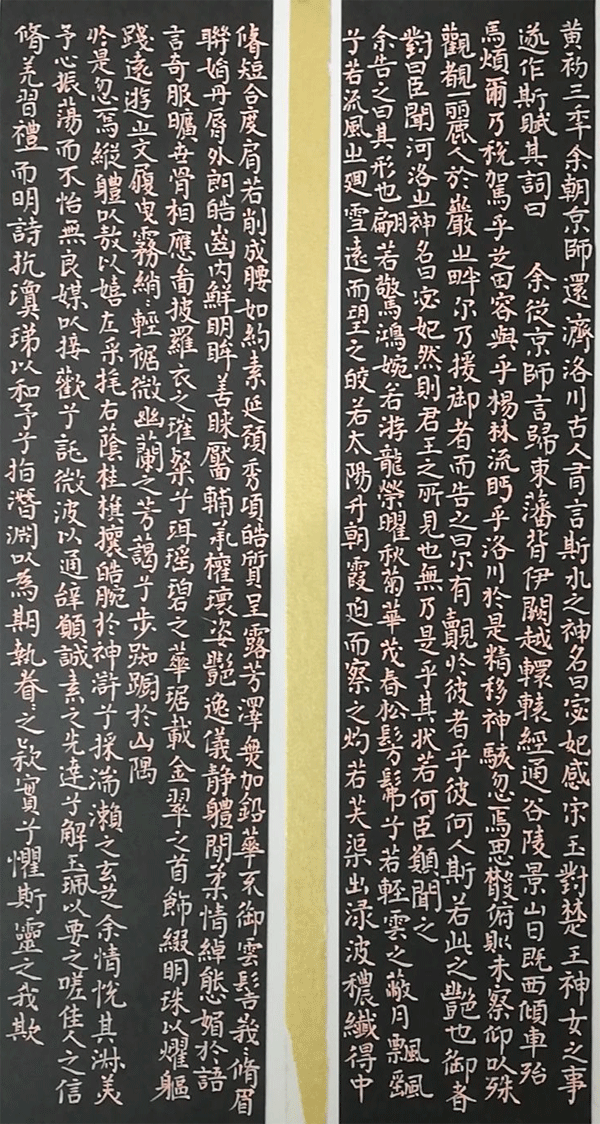 黄初三年余朝京師還濟洛川古人有言斯水之神名曰宓妃感宋玉對楚王神女之事
遂作斯賦其詞曰 余從京師言歸東藩背伊闕越轘轅經通谷陵景山日既西傾車殆
馬煩爾乃稅駕乎芝田容與乎楊林流眄乎洛川於是精移神駭忽焉思散俯則未察仰以殊
觀覩一麗人於巖之畔尔乃援御者而告之曰尔有覿於彼者乎彼何人斯若此之艷也御者
對曰臣聞河洛之神名曰宓妃然則君王之所見也無乃是乎其狀若何臣願聞之
余告之曰其形也翩若驚鴻婉若游龍榮曜秋菊華茂春松髣髴兮若輕雲之蔽月飄颻
兮若流風之迴雪遠而望之皎若太陽升朝霞迫而察之灼若芙渠出渌波穠纖得中
脩短合度肩若削成腰如約素延頸秀項皓質呈露芳澤無加鉛華不御雲髻峩峩脩眉
聯娟丹脣外朗皓齒內鮮明眸善睞靨輔承權瓌姿艷逸儀静體閒柔情綽態媚於語
言奇服曠世骨相應圖披羅衣之璀粲兮珥瑶碧之華琚載金翠之首飾綴明珠以燿軀
踐遠遊之文履曳霧綃之輕裾微幽蘭之芳藹兮步踟躕於山隅
於是忽焉縱體以敖以嬉左采旄右蔭桂旗攘皓腕於神滸兮採湍瀨之玄芝余情悅其淑美
予心振蕩而不怡無良媒以接歡兮託微波以通辭願誠素之先達兮解玉珮以要之嗟佳人之信
脩羌習禮而明詩抗瓊珶以和予兮指潛淵以為期執眷眷之款實兮懼斯靈之我欺